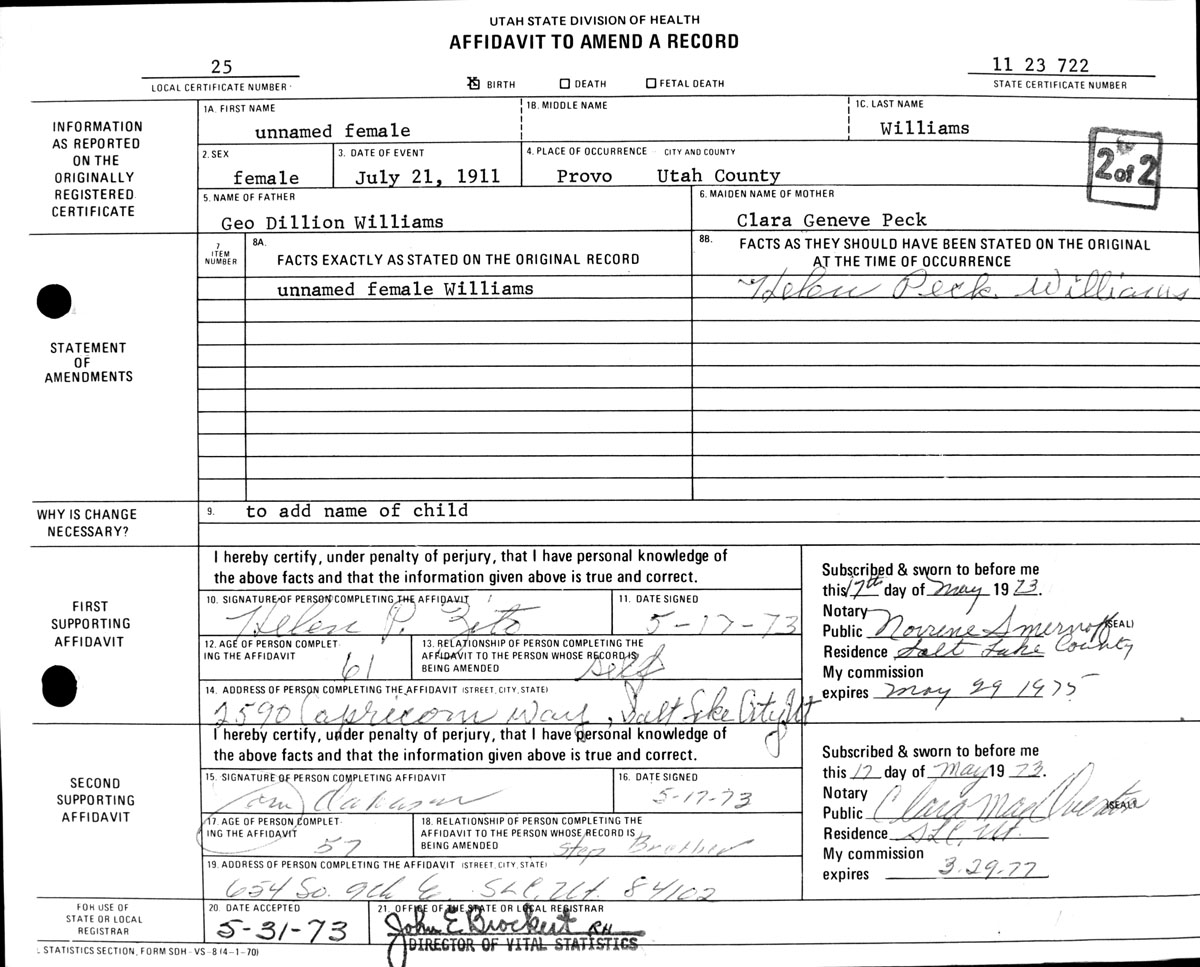 UTAH STATE DIVISION OF HEALTH
AFFIDAVIT TO AMEND A RECORD
25
LOCAL CERTIFICATE NUMBER
X BIRTH
DEATH
FETAL DEATH
11 23 722
STATE CERTIFICATE NUMBER
INFORMATION
AS REPORTED
ON THE
ORIGINALLY
REGISTERED
CERTIFICATE
1A. FIRST NAME
unnamed female
1B. MIDDLE NAME
1C. LAST NAME
Williams
2. SEX
female
3. DATE OF EVENT
July 21, 1911
4. PLACE OF OCCURRENCE - CITY AND COUNTY
Provo Utah County
2 of 2
5. NAME OF FATHER
Geo Dillion Williams
6. MAIDEN NAME OF MOTHER
Clara Geneve Peck
STATEMENT
OF
AMENDMENTS
7
ITEM
NUMBER
8A.
FACTS EXACTLY AS STATED ON THE ORIGINAL RECORD
8B.
FACTS AS THEY SHOULD HAVE BEEN STATED ON THE ORIGINAL
AT THE TIME OF OCCURRENCE
unnamed female Williams
Helen Peck Williams
WHY IS CHANGE
NECESSARY?
9. to add name of child
FIRST
SUPPORTING
AFFIDAVIT
I hereby certify, under penalty of perjury, that I have personal knowledge of
the above facts and that the information given above is true and correct.
10. SIGNATURE OF PERSON COMPLETING THE AFFIDAVIT
Helen P. Zito
11. DATE SIGNED
5-17-73
12. AGE OF PERSON COMPLET-
ING THE AFFIDAVIT
61
13. RELATIONSHIP OF PERSON COMPLETING THE
AFFIDAVIT TO THE PERSON WHOSE RECORD IS
BEING AMENDED
self
14. ADDRESS OF PERSON COMPLETING THE AFFIDAVIT (STREET, CITY, STATE)
2590 Capricorn Way, Salt Lake City, Ut
Subscribed & sworn to before me
this 17th day of May 1973.
Notary
Public Norrene Smernoff (SEAL)
Residence Salt Lake County
My commission
expires May 29 1975
SECOND
SUPPORTING
AFFIDAVIT
I hereby certify, under penalty of perjury, that I have personal knowledge of
the above facts and that the information given above is true and correct.
15. SIGNATURE OF PERSON COMPLETING AFFIDAVIT
16. DATE SIGNED
5-17-73
17. AGE OF PERSON COMPLET-
ING THE AFFIDAVIT
57
18. RELATIONSHIP OF PERSON COMPLETING THE
AFFIDAVIT TO THE PERSON WHOSE RECORD IS
BEING AMENDED
Step Brother
19. ADDRESS OF PERSON COMPLETING THE AFFIDAVIT (STREET, CITY, STATE)
654 So. 9th E. SLC, Ut. 84102
Subscribed & sworn to before me
this 17 day of May 1973.
Notary
Public Clara Mae Overton (SEAL)
Residence SLC, Ut.
My commission
expires 3.29.77
FOR USE OF
STATE OR LOCAL
REGISTRAR
20. DATE ACCEPTED
5-31-73
21. OFFICE OF THE STATE OR LOCAL REGISTRAR
John E. Brockert RH
DIRECTOR OF VITAL STATISTICS
STATISTICS SECTION, FORM SDH-VS-8 (4-1-70)